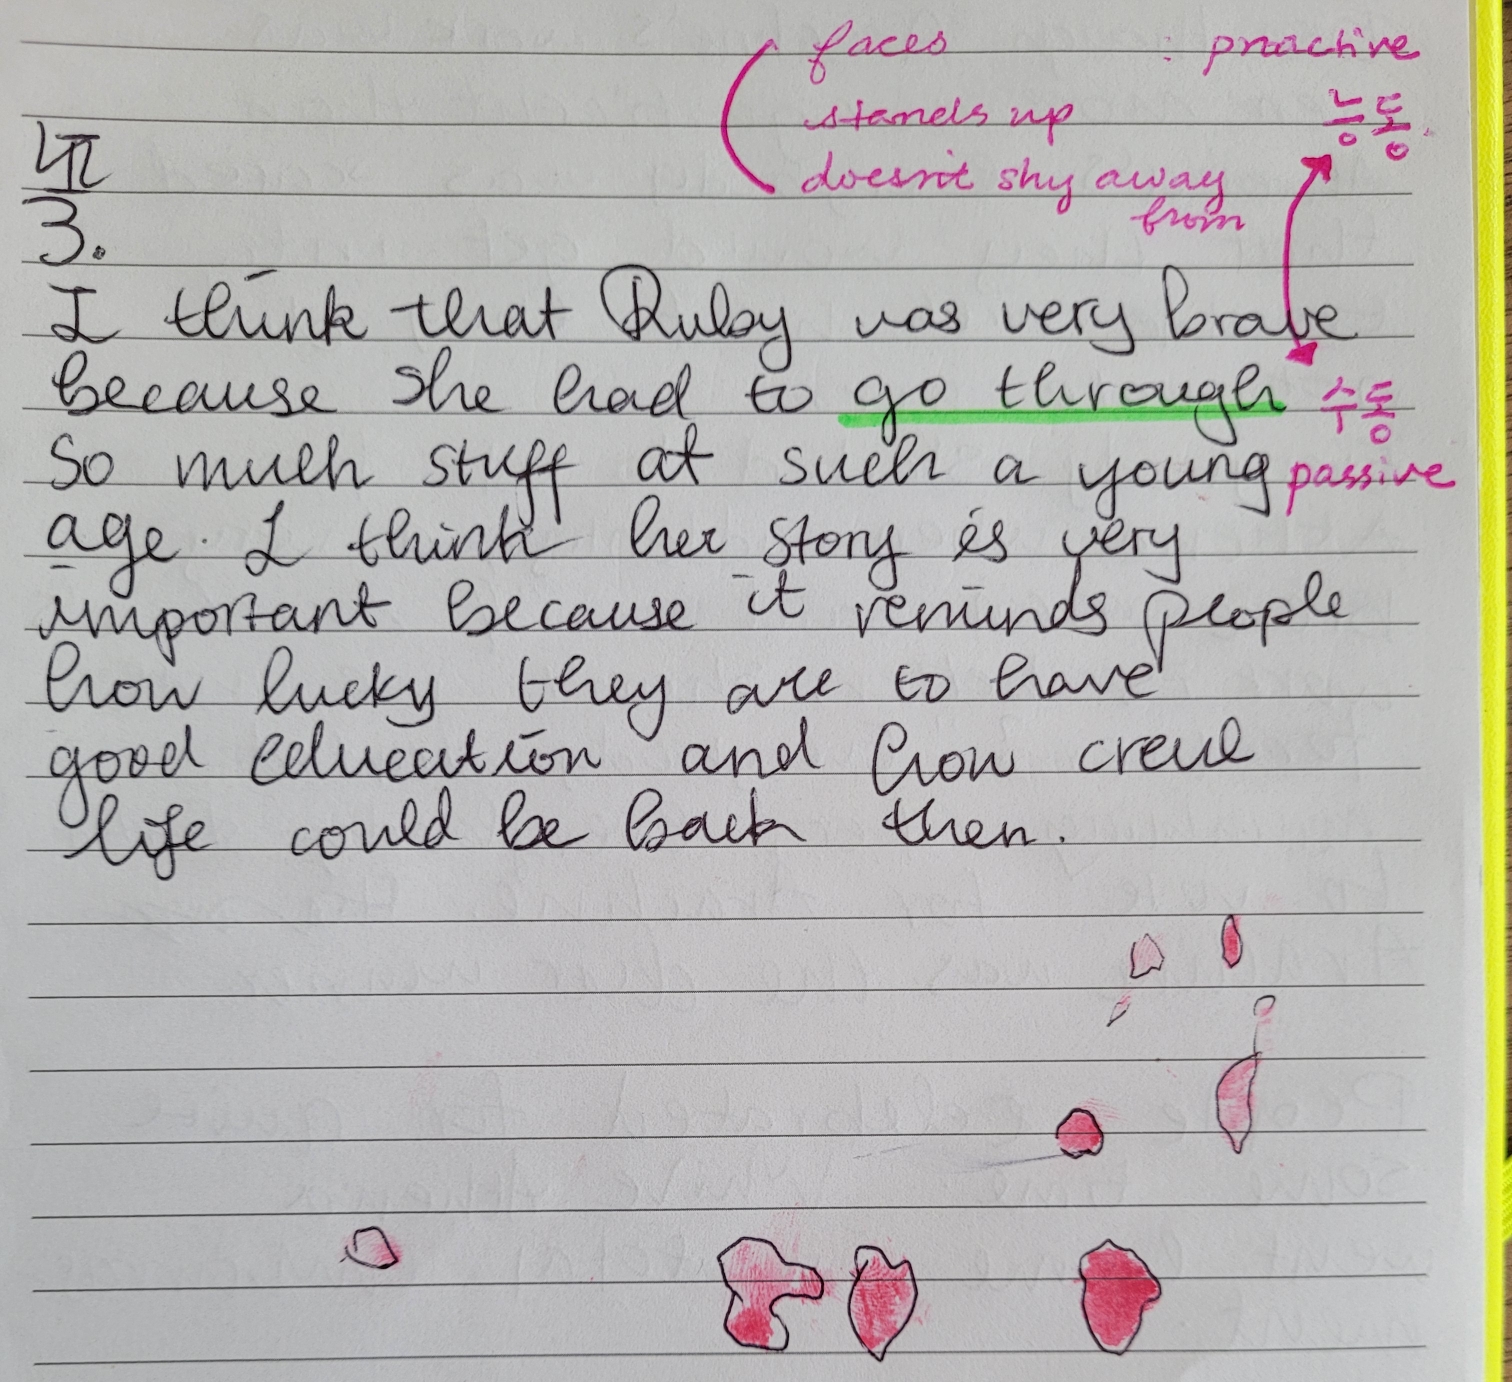 faces : proactive
stands up 능동
doesn't shy away
from
3.
I think that Ruby was very brave
because she had to go through 수동
so much stuff at such a young passive
age. I think her story is very
important because it reminds people
how lucky they are to have
good education and how creul
life could be back then.